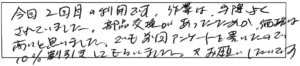 今回2回目の利用です。作業は、手際よく
されていました。部品交換があったためか、価格は
高いと思いました。でも前回アンケートを書いたので
10%割引きしてもらいました。又お願いしたいです